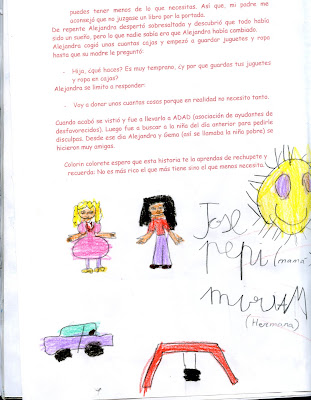 puedes tener menos de lo que necesitas. Así que, mi padre me
aconsejó que no juzgase un libro por la portada.
De repente Alejandra despertó sobresaltada y descubrió que todo había
sido un sueño, pero lo que nadie sabía era que Alejandra había cambiado.
Alejandra cogió unas cuantas cajas y empezó a guardar juguetes y ropa
hasta que su madre le preguntó:
- Hija, ¿qué haces? Es muy temprano, ¿y por que guardas tus juguetes
y ropa en cajas?
Alejandra se limito a responder:
- Voy a donar unas cuantas cosas porque en realidad no necesito tanto.
Cuando acabó se vistió y fue a llevarlo a ADAD (asociación de ayudantes de
desfavorecidos). Luego fue a buscar a la niña del día anterior para pedirle
disculpas. Desde ese día Alejandra y Gema (así se llamaba la niña pobre) se
hicieron muy amigas.
Colorín colorete espero que esta historia te la aprendas de rechupete y
recuerda: No es más rico el que más tiene sino el que menos necesita.
Jose
pepi (mamá)
miriam
(Hermana)